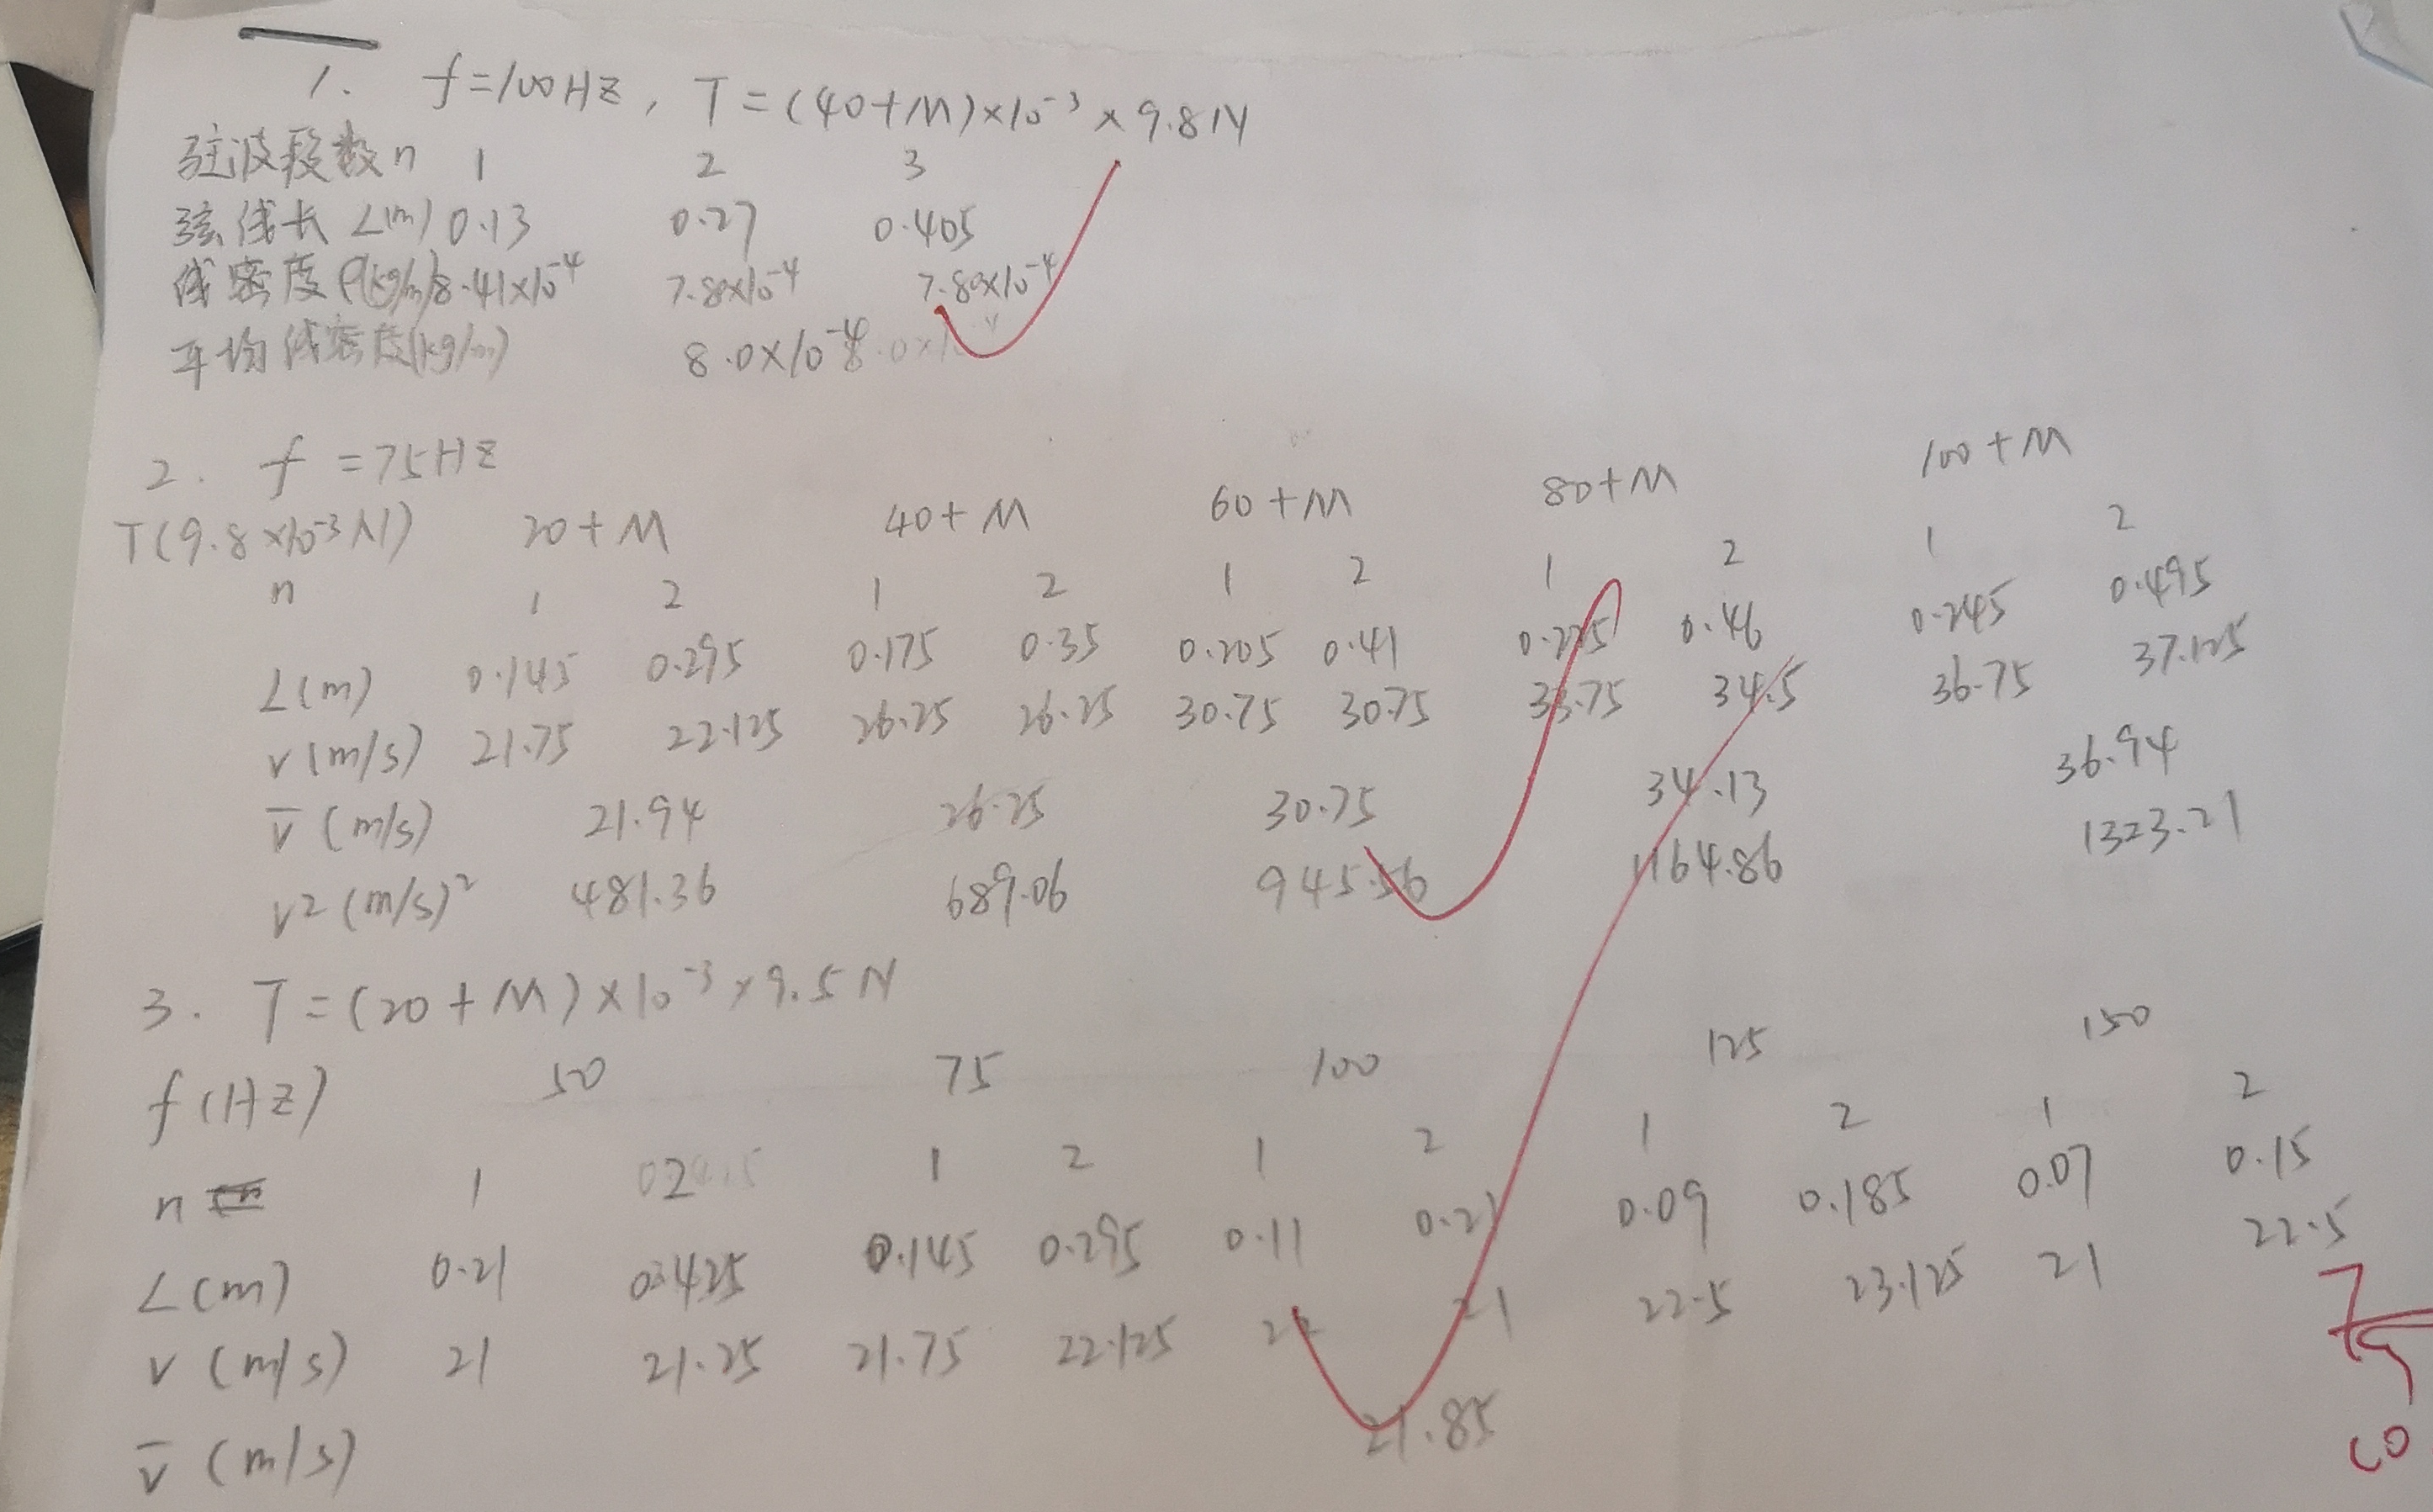 1. f=100HZ, T=(40+M)×10⁻³×9.8N
驻波段数n 1 2 3
弦线长 L(m) 0.13 0.27 0.405
线密度ρ(kg/m) 8.41×10⁻⁴ 7.80×10⁻⁴ 7.80×10⁻⁴
平均线密度(kg/m) 8.0×10⁻⁴
2. f=75HZ
T(9.8×10⁻³N) 20+M 40+M 60+M 80+M 100+M
n 1 2 1 2 1 2 1 2 1 2
L(m) 0.145 0.295 0.175 0.35 0.205 0.41 0.225 0.46 0.245 0.495
v(m/s) 21.75 22.125 26.25 26.25 30.75 30.75 33.75 34.5 36.75 37.125
v̅(m/s) 21.94 26.25 30.75 34.13 36.94
v2(m/s)² 481.36 689.06 945.56 1164.86 1323.21
3. T=(20+M)×10⁻³×9.5N
f(HZ) 50 75 100 125 150
n 1 2 1 2 1 2 1 2 1 2
L(m) 0.21 0.425 0.145 0.295 0.11 0.21 0.09 0.185 0.07 0.15
v(m/s) 21 21.25 21.75 22.125 22 21 22.5 23.125 21 22.5
v̅(m/s) 21.85